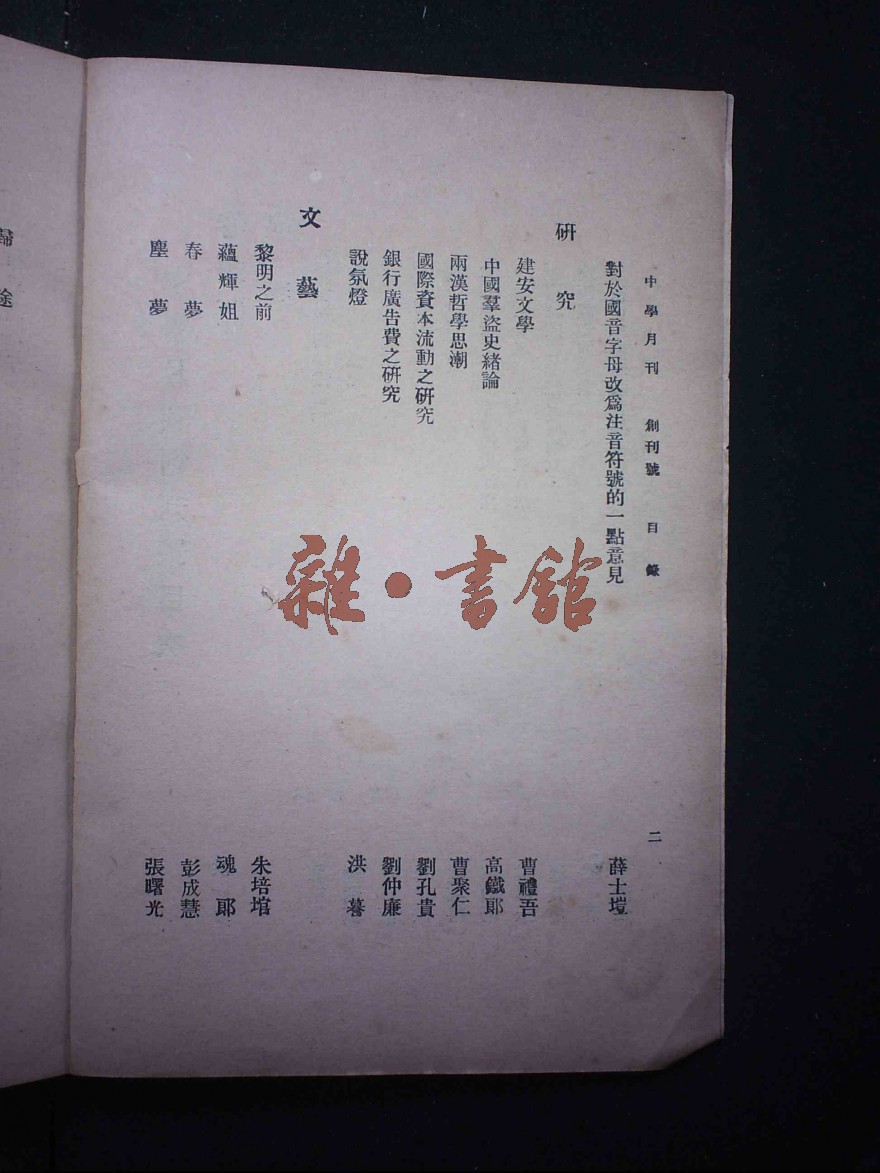 中學月刊 創刊號 目錄 二
對於國音字母改爲注音符號的一點意見 薛士塏
研究
建安文學 曹禮吾
中國羣盜史緒論 高鐵郎
兩漢哲學思潮 曹聚仁
國際資本流動之研究 劉孔貴
銀行廣告費之研究 劉仲廉
說氛燈 洪暮
文藝
黎明之前 朱培倌
蘊輝姐 魂郎
春夢 彭成慧
塵夢 張曙光
歸途
雜·書館